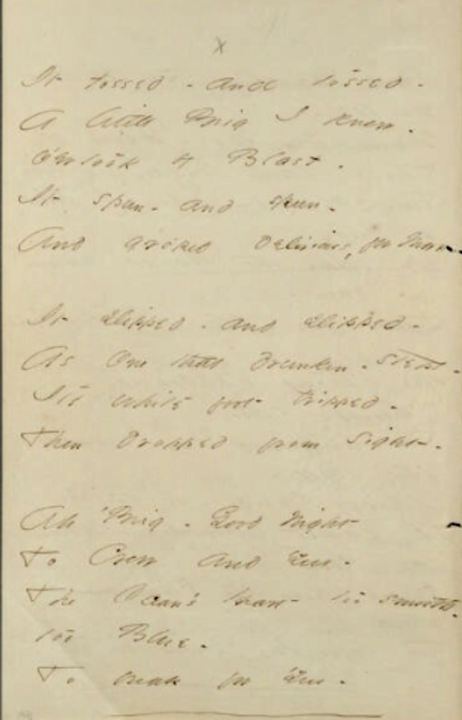 x
It tossed - and tossed -
A little Brig I knew -
O'ertook by Blast -
It spun - and spun -
And groped delirious, for Morn -
It slipped - and slipped -
As One that drunken - stept -
Its white foot tripped -
Then dropped from sight -
Ah Brig - Good Night
To Crew and You -
The Ocean's Heart too smooth -
too Blue -
To break for You -